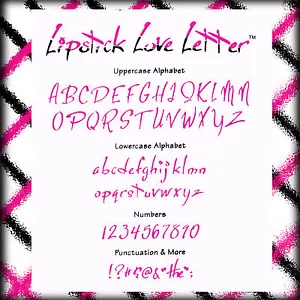 Lipstick Love Letter™
Uppercase Alphabet
ABCDEFGHIJKLMN
OPQRSTUVWXYZ
Lowercase Alphabet
abcdefghijklmn
opqrstuvwxyz
Numbers
1234567890
Punctuation & More